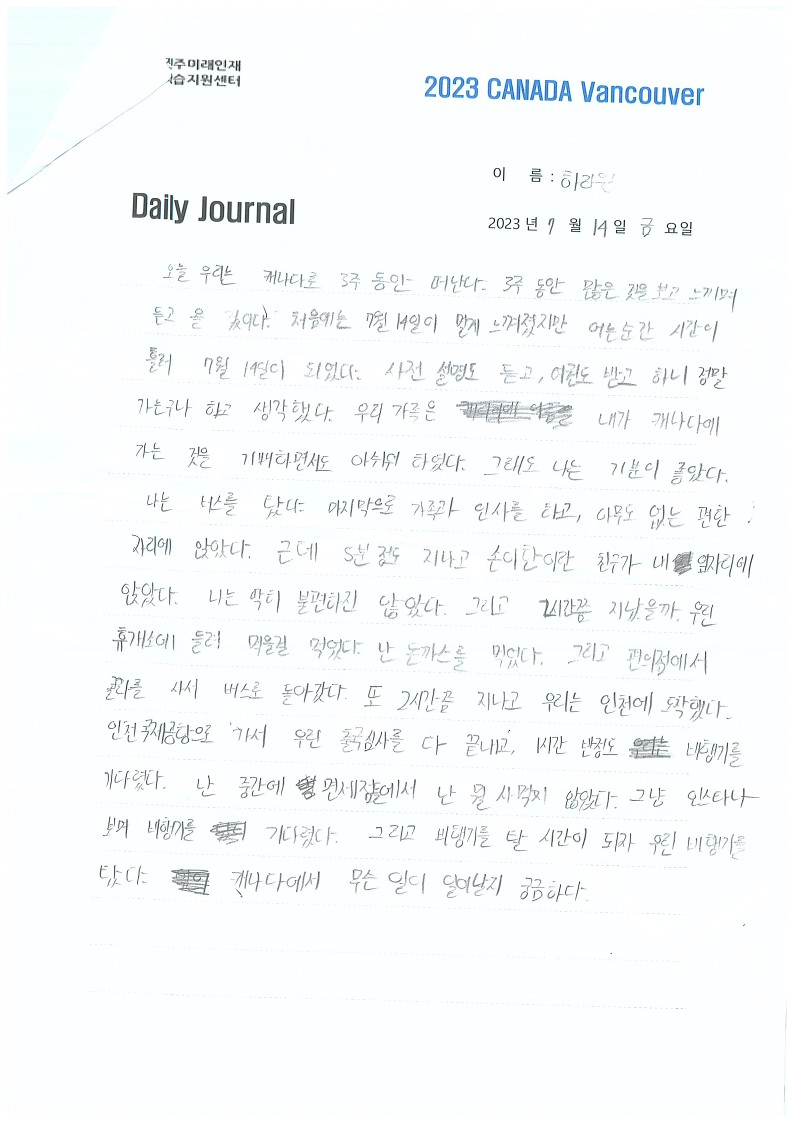 전주미래인재
학습지원센터
2023 CANADA Vancouver
이 름 : 하라원
Daily Journal
2023 년 7 월 14 일 금 요일
오늘 우리는 캐나다로 3주 동안 떠난다. 3주 동안 많은 것을 보고 느끼며
듣고 올 것이다. 처음에는 7월 14일이 멀게 느껴졌지만 어느순간 시간이
흘러 7월 14일이 되었다. 사전 설명도 듣고, 여권도 받고 하니 정말
가는구나 하고 생각했다. 우리 가족은 내가 캐나다에
가는 것을 기뻐하면서도 아쉬워 하였다. 그래도 나는 기분이 좋았다.
나는 버스를 탔다. 마지막으로 가족과 인사를 하고, 아무도 없는 편한
자리에 앉았다. 근데 5분 정도 지나고 손이한이란 친구가 내 옆자리에
앉았다. 나는 딱히 불편하진 않았다. 그리고 2시간쯤 지났을까. 우린
휴게소에 들러 먹을걸 먹었다. 난 돈까스를 먹었다. 그리고 편의점에서
콜라를 사서 버스로 돌아갔다. 또 2시간쯤 지나고 우리는 인천에 도착했다.
인천국제공항으로 가서 우린 출국심사를 다 끝내고, 1시간 반정도 비행기를
기다렸다. 난 중간에 면세점에서 난 뭘 사먹지 않았다. 그냥 인스타나
보며 비행기를 기다렸다. 그리고 비행기를 탈 시간이 되자 우린 비행기를
탔다. 캐나다에서 무슨 일이 일어날지 궁금하다.